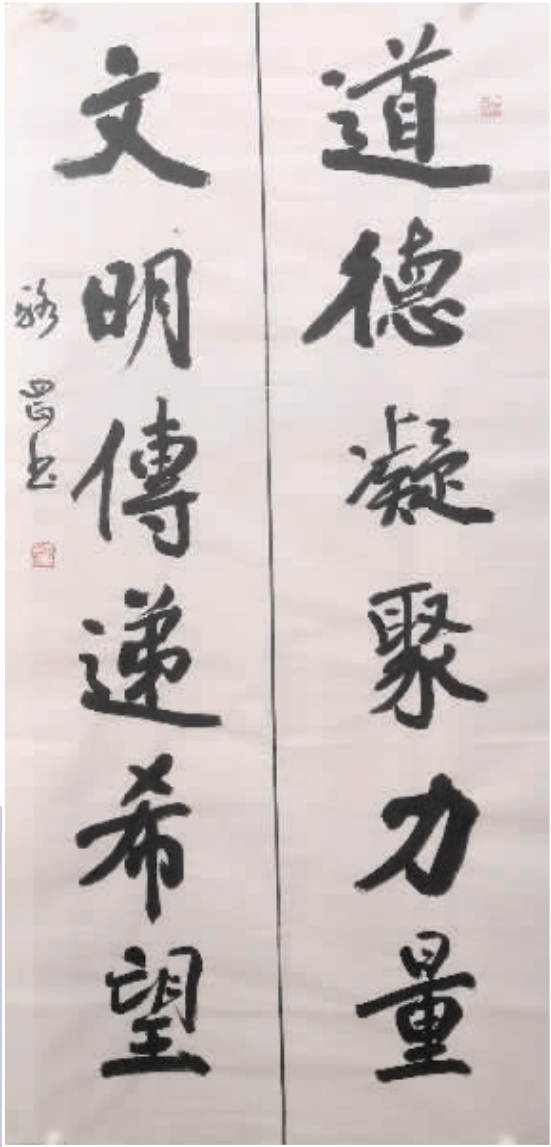 道德凝聚力量
文明傳遞希望